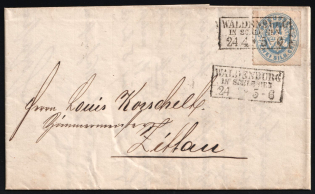 WALDENBURG
IN SCHLESIEN
24 4 * 5-6
WALDENBURG
IN SCHLESIEN
24 4 * 5-6
Herrn Louis Korschelt
Zimmermeister
Zittau